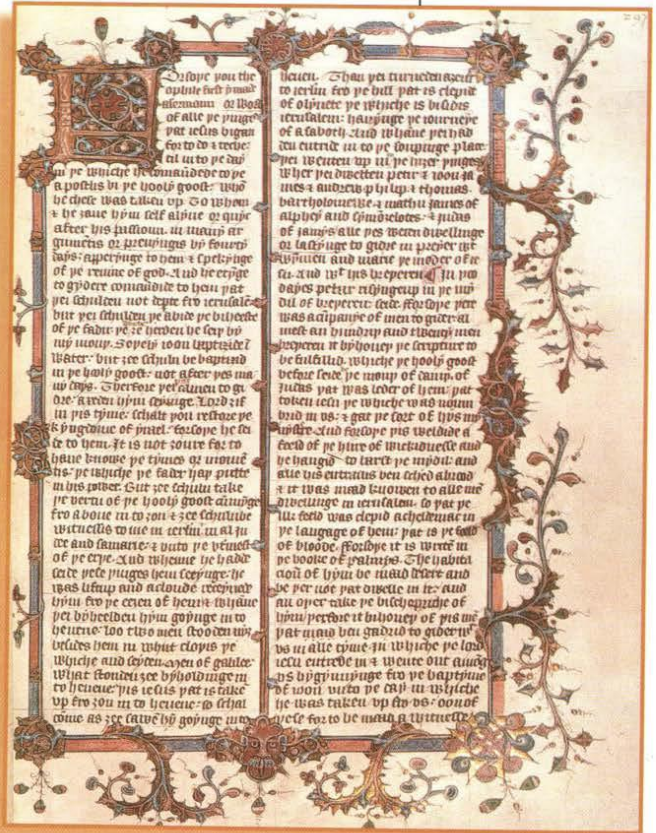 297
Forsoþe you the
ophile first y mad
a sermoun or word
of alle þe þinge
þat iesus bigan
for to do & teche
til in to þe day
in þe whiche he comaundede to þe
apostlis bi þe hooly goost whom
he chese was taken up To whom
& he ȝaue hym self alyue or quyk
after his passioun in many ar
gumetis or preuyngis by fourty
days apperynge to hem & spekynge
of þe reume of god And he etynge
to gydere comaundide to hem þat
þei schulden not depte fro ierusalem
but þei schulden þe abide þe biheeste
of þe fadir þe ȝe herden he seiþ by
my mouþ Soþely ioon baptizide i
water but ȝee schuln be baptisid
in þe hooly goost not after þes ma
ny days Therfore þei camen to gi
dre axeden hym seyinge Lord if
in þis tyme schalt þou restore þe
kyngdome of israel forsoþe he sei
de to hem It is not ȝoure for to
haue knowe þe tymes or momen
tis þe whiche þe fader haþ putte
in his power But ȝee schuln take
þe vertu of þe hooly goost comynge
fro aboue in to ȝou & ȝee schuln be
witnessis to me in ierlm in al iu
dee and samarie & unto þe utmest
of þe erþe And whenne he hadde
seide þese þinges hem seeynge he
was lift up and a cloude receyuede
hym fro þe eeȝen of hem & whane
þei byheelden hym goynge in to
heuene loo two men stooden nyȝ
besides hem in whiyt cloþis þe
whiche and seyden Men of galilee
What stonden ȝee byholdinge in
to heuene þis iesus þat is take
up fro ȝou in to heuene so schal
come as ȝee sawe hym goynge in to
heuen Than þei turneden aȝein
to ierlm fro þe hill þat is clepid
of olyuete þe whiche is bisidis
ierusalem hauynge þe iourneye
of a saboth And whane þei had
den entride in to þe soupinge place
þei wenten up in þe hiȝer þinges
wher þei dwelten petir & ioon ia
mes & andrew philip & thomas
bartholomewe & mathu iames of
alphey and symon zelotes & iudas
of iamys alle þes weren dwellinge
or lastynge to gidre in preyer wt
wymmen and marie þe moder of ie
su And wt his breþeren In þo
dayes petir risynge up in þe my
dil of breþeren seide forsoþe þere
was a cumpanye of men to gider al
mest an hundrid and twenty men
breþeren it byhoueþ þe scripture to
be fulfillid whiche þe hooly goost
before seide þe mouþ of dauiþ of
iudas þat was leder of hem þat
token iesu þe whiche was noum
brid in us & gat þe sort of þis my
nystre And forsoþe þis weldide a
feeld of þe hire of wickidnesse and
he hangid to barst þe mydil and
alle his entrailis ben sched abrood
& it was maad knowen to alle men
dwellinge in ierusalem so þat þe
ilk feeld was clepid acheldemac in
þe langage of hem þat is þe feeld
of bloode fforsoþe it is writen in
þe booke of psalmys The habita
cioun of hym be maad desert and
be þer not þat dwelle in it and
an oþer take þe bischopriche of
hym þerfore it bihoueþ of þis men
þat maad ben gadrid to gider wt
us in alle tyme in whiche þe lord
iesu entrede in & wente out among
us bygynnynge fro þe baptyme
of ioon un to þe day in whiche
he was taken up fro us oon of
þese for to be maad a witnesse